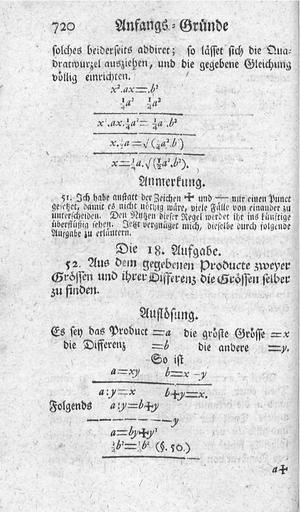 720 Anfangs-Gründe
solches beiderseits addiret; so lässet sich die Qua-
dratwurzel ausziehen, und die gegebene Gleichung
völlig einrichten.
x².ax=.b²
¼a² ¼a²
x².ax.¼a²=¼a².b²
x.½a=√(¼a².b)
x=½a.√(¼a².b²).
Anmerkung.
51. Ich habe anstatt der Zeichen + und — nur einen Punct
gesetzet, damit es nicht nöthig wäre, viele Fälle von einander zu
unterscheiden. Den Nutzen dieser Regel werdet ihr ins künftige
überflüßig sehen. Jetzt vergnüget mich, dieselbe durch folgende
Aufgabe zu erläutern.
Die 18. Aufgabe.
52. Aus dem gegebenen Producte zweyer
Grössen und ihrer Differenz die Grössen selber
zu finden.
Auflösung.
Es sey das Product =a die gröste Grösse =x
die Differenz =b die andere =y.
So ist
a=xy b=x-y
a:y=x b+y=x.
Folgends a:y=b+y
y
a=by+y²
¼b²=¼b² (§. 50.)
a+